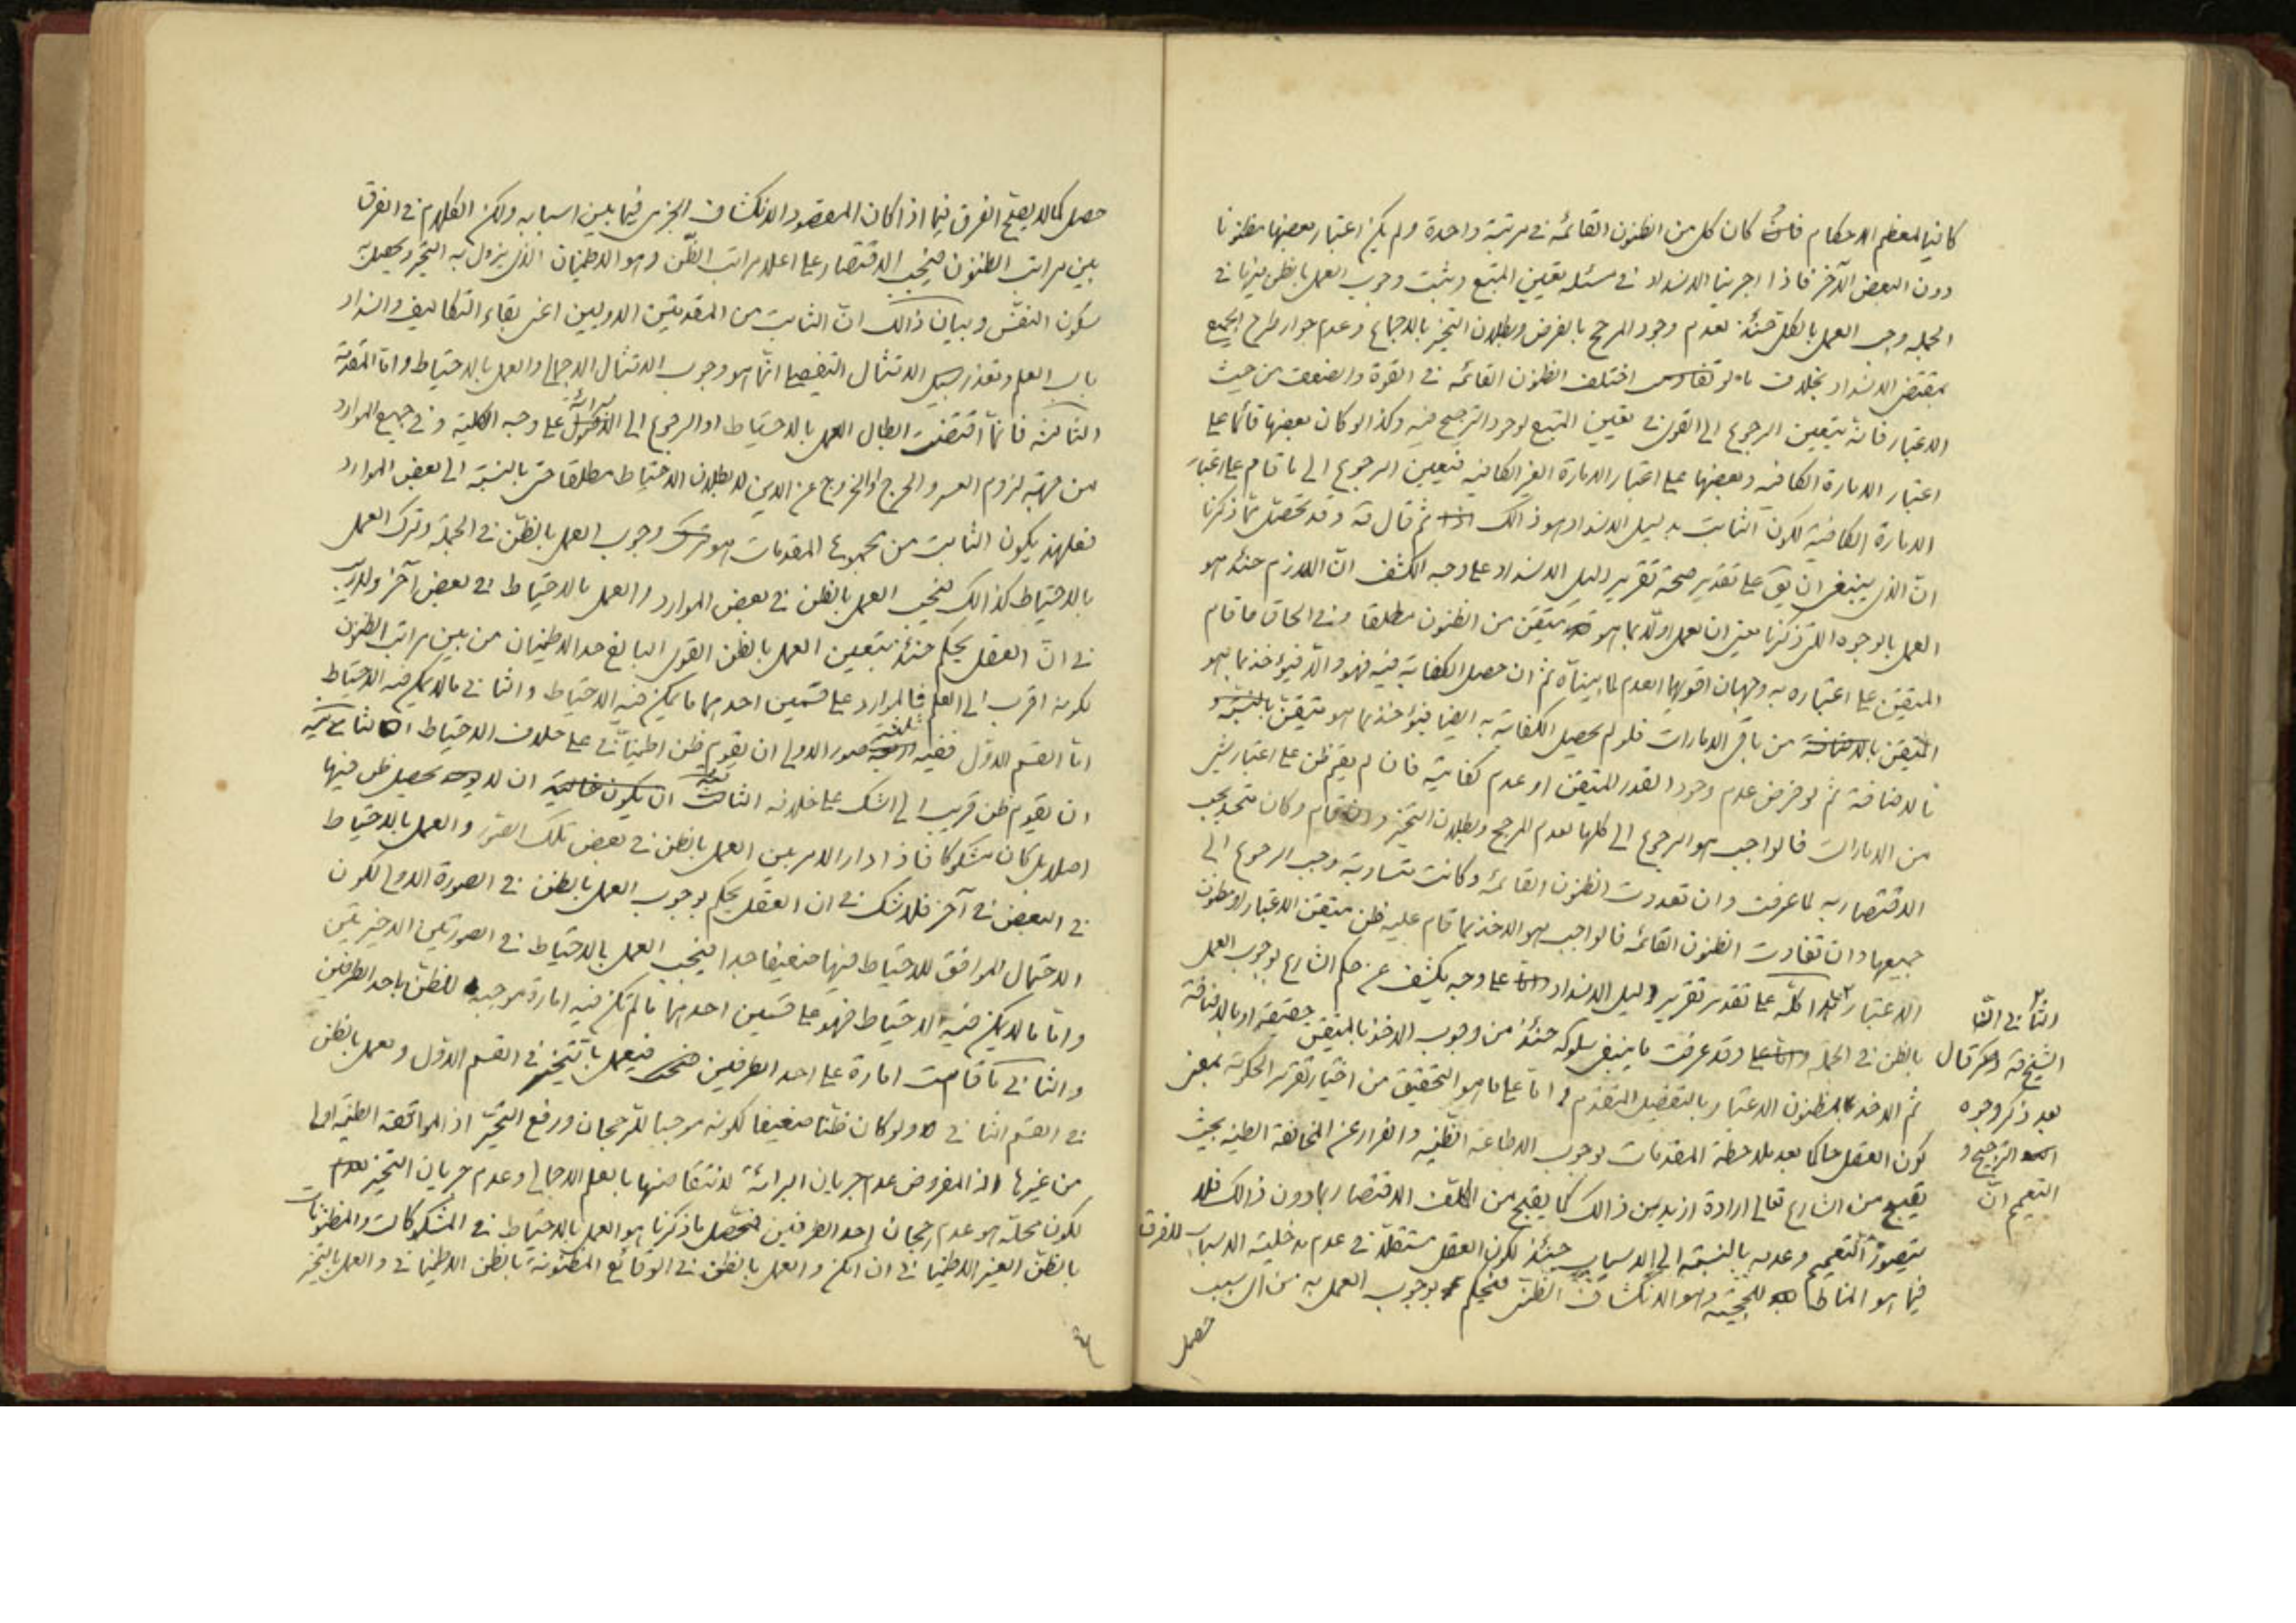 كافيا لمعظم الاحكام فان كان كل من الظنون القائمة في مرتبة واحدة ولم يكن اعتبار بعضها مظنونا
دون البعض الآخر فاذا اجرينا الانسداد في مسئلة تعيين المتبع ويثبت وجوب العمل بالظن فيها في
الجملة وجب العمل بالكل حينئذ لعدم وجود المرجح بالفرض وبطلان التخيير بالاجماع وعدم جواز طرح الجميع
بمقتضى الانسداد بخلاف ما لو اختلف الظنون القائمة في القوة والضعف من حيث
الاعتبار فانه يتعين الرجوع الى القوى في تعيين المتبع لوجود الترجيح فيه وكذا لو كان بعضها قائما على
اعتبار الامارة الكافية وبعضها على اعتبار الامارة الغير الكافية فيتعين الرجوع الى ما قام على اعتبار
الامارة الكافية لكون الثابت بدليل الانسداد هو ذالك ثم قال قه وقد تحصل مما ذكرنا
ان الذي ينبغى ان يق على تقدير صحة تقرير دليل الانسداد على وجه الكشف ان اللازم حينئذ هو
العمل بالوجوه التى ذكرنا يعنى ان يعمل اولا بما هو متيقن من الظنون مطلقا وفي الحاق ما قام
المتيقن على اعتباره به وجهان اقويهما العدم لما بيناه ثم ان حصل الكفاية فيه فهو والا فيؤخذ بما هو
المتيقن بالاضافة من باقي الامارات فلو لم يحصل الكفاية به ايضا فيؤخذ بما هو متيقن بالنسبة و
بالاضافة ثم لو فرض عدم وجود القدر المتيقن او عدم كفايته فان لم يقم ظن على اعتبار شئ
من الامارات فالواجب هو الرجوع الى كلها لعدم المرجح وبطلان التخيير وان قام وكان متحدا يجب
الاقتصار به لما عرفت وان تعددت الظنون القائمة وكانت متساوية وجب الرجوع الى
جميعها وان تفاوت الظنون القائمة فالواجب هو الاخذ بما قام عليه ظن متيقن الاعتبار او مظنون
الاعتبار هذا كله على تقدير تقرير دليل الانسداد على وجه يكشف عن حكم الشارع بوجوب العمل
بالظن في الجملة وقد عرفت ما ينبغى سلوكه حينئذ من وجوب الاخذ بالمتيقن حقيقة او بالاضافة
ثم الاخذ بمظنون الاعتبار بالتفصيل المتقدم واما على ما هو التحقيق من اختيار تقرير الحكومة بمعنى
كون العقل حاكما بعد ملاحظة المقدمات بوجوب الاطاعة الظنية والفرار عن المخالفة الظنية بحيث
يقبح من الشارع تعالى ارادة ازيد من ذالك كما يقبح من المكلف الاقتصار بما دون ذالك فلا
يتصور التعميم وعدمه بالنسبة الى الاسباب حينئذ لكون العقل مستقلا في عدم مدخلية الاسباب للفرق
فيما هو المناط للحجية وهو الانكشاف الظنى فيحكم بوجوب العمل به من اى سبب
حصل
الثاني
الشيخ قه قال
بعد ذكر وجوه
الترجيح و
التعميم ان
حصل كما لا يصح الفرق فيما اذا كان المقصود الانكشاف الجزمى فيما بين اسبابه ولكن الكلام في الفرق
بين مراتب الظنون فيجب الاقتصار على اعلا مراتب الظن وهو الاطمينان الذي يزول به التحير ويحصل به
سكون النفس وبيان ذالك ان الثابت من المقدمتين الاوليين اعنى بقاء التكاليف وانسداد
باب العلم وتعذر سبيل الامتثال التفصيلى انما هو وجوب الامتثال الاجمالى والعمل بالاحتياط واما المقدمة
الثالثة فانما اقتضت ابطال العمل بالاحتياط او الرجوع الى على وجه الكلية وفي جميع الموارد
من جهة لزوم العسر والحرج او الخروج عن الدين لا بطلان الاحتياط مطلقا حتى بالنسبة الى بعض الموارد
فعلهذا يكون الثابت من مجموع المقدمات هو وجوب العمل بالظن في الجملة وترك العمل
بالاحتياط كذالك فيجب العمل بالظن في بعض الموارد والعمل بالاحتياط في بعض آخر ولا ريب
في ان العقل يحكم حينئذ بتعيين العمل بالظن القوى البالغ حد الاطمينان من بين مراتب الظنون
لكونه اقرب الى العلم فالموارد على قسمين احدهما ما يمكن فيه الاحتياط والثاني ما لا يمكن فيه الاحتياط
اما القسم الاول ففيه ثلاثة صور الاولى ان يقوم ظن اطميناني على خلاف الاحتياط الثانية
ان يقوم ظن قريب الى الشك على خلافه الثالثة ان لا يحصل ظن فيها
اصلا بل كان مشكوكا فاذا دار الامر بين العمل بالظن في بعض تلك الصور والعمل بالاحتياط
في البعض في آخر فلا شك في ان العقل يحكم بوجوب العمل بالظن في الصورة الاولى لكون
الاحتمال الموافق للاحتياط فيها ضعيفا جدا فيجب العمل بالاحتياط في الصورتين الاخيرتين
واما ما لا يمكن فيه الاحتياط فهو على قسمين احدهما ما لم تكن فيه امارة موجبة للظن باحد الطرفين
والثاني ما قامت امارة على احد الطرفين فيعمل بالتخيير في القسم الاول ويعمل بالظن
في القسم الثاني ولو كان ظنا ضعيفا لكونه موجبا للرجحان ورفع التحير اذ الموافقة الظنية اولى
من غيرها اذ المفروض عدم جريان البرائة لانتقاضها بالعلم الاجمالى وعدم جريان التخيير لعدم
لكون محله هو عدم رجحان احد الطرفين فتحصل ما ذكرنا هو العمل بالاحتياط في المشكوكات والمظنونات
بالظن الغير الاطمينانى ان امكن والعمل بالظن في الوقائع المظنونة بالظن الاطمينانى والعمل بالتخيير